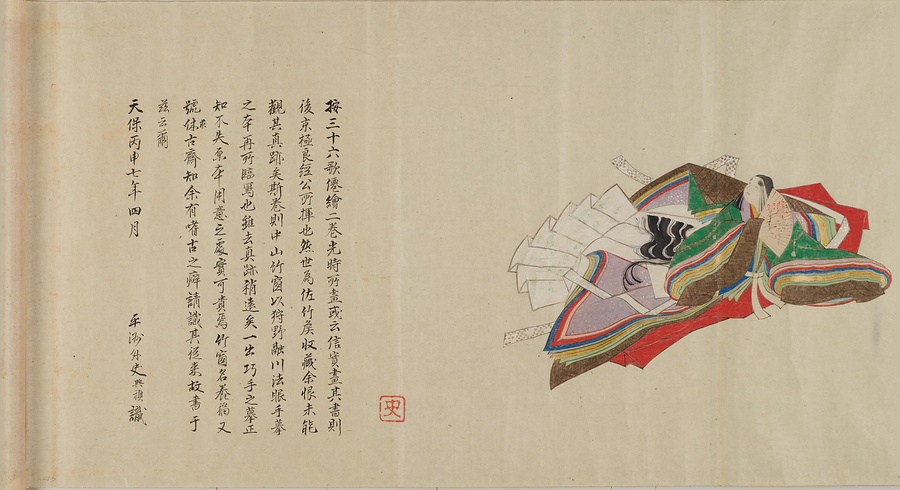 按三十六歌僊繪二卷光時所畫或云信實畫其書則
後京極良経公所揮也然世為佐竹矦收藏余恨未能
觀其真跡矣斯卷則中山竹窗以狩野融川法眼手摹
之本再所臨寫也雖去真跡稍遠矣一出巧手之摹正
知不失原本用意之處實可貴焉竹窗名養福又
號休古齋知余有嗜古之癖請識其従来故書于
茲云爾
天保丙申七年四月
平洲外史 識
史